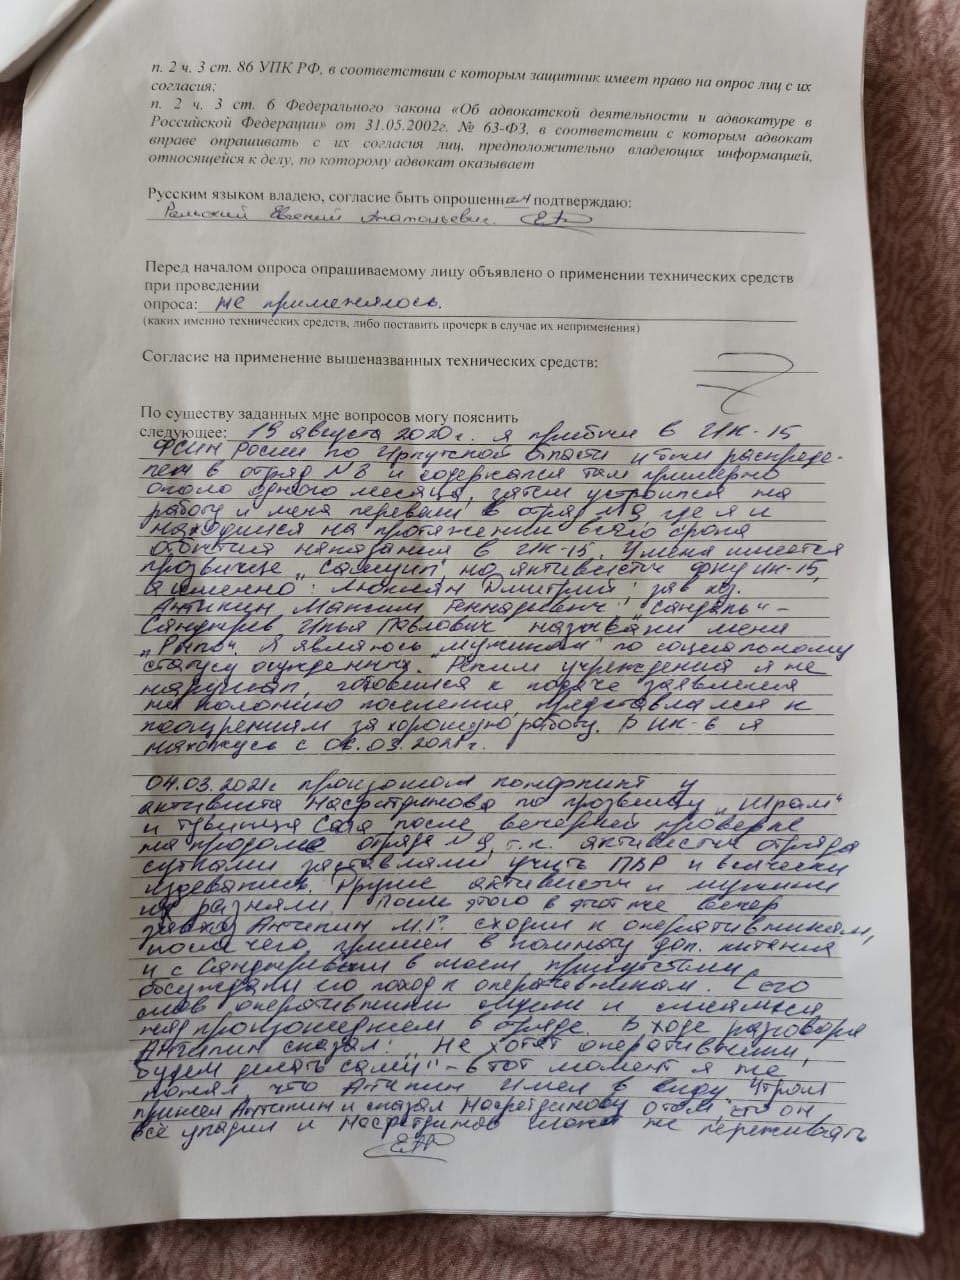 п. 2 ч. 3 ст. 86 УПК РФ, в соответствии с которым защитник имеет право на опрос лиц с их
согласия;
п. 2 ч. 3 ст. 6 Федерального закона «Об адвокатской деятельности и адвокатуре в
Российской Федерации» от 31.05.2002г. № 63-ФЗ, в соответствии с которым адвокат
вправе опрашивать с их согласия лиц, предположительно владеющих информацией,
относящейся к делу, по которому адвокат оказывает
Русским языком владею, согласие быть опрошенным подтверждаю:
Евгений Анатольевич.
Перед началом опроса опрашиваемому лицу объявлено о применении технических средств
при проведении
опроса: не применялось.
(каких именно технических средств, либо поставить прочерк в случае их неприменения)
Согласие на применение вышеназванных технических средств:
По существу заданных мне вопросов могу пояснить
следующее: 19 августа 2020г. я прибыл в ИК-15
ФСИН Росии по Иркутской области и был распреде-
лен в отряд №8 и содержался там примерно
около одного месяца, затем устроился на
работу и меня перевели в отряд №9 где я и
находился на протяжении всего срока
отбытия наказания в ИК-15. У меня имеется
прозвище но активисты ФКУ ИК-15,
а именно: Дмитрий, зав хоз.
Антипин Максим Геннадьевич, "Сандаль" -
Илья Павлович называли меня
Я являюсь "мужиком" по социальному
статусу осужденных. Режим учреждения я не
нарушал, готовился к подаче заявления
на колонию поселения, представлялся к
поощрениям за хорошую работу. В ИК-6 я
нахожусь с 03.2021г.
04.03.2021г произошол конфликт у
активиста Насретдинова по прозвищу "Шрам"
и тувинца Сая после вечерней проверке
на продоле отряда №9, т.к. активисты отряда
сутками заставляли учить ПВР и всячески
издевались. Другие активисты и мужики
их разняли. После этого в этот же вечер
завхоз Антипин М.Г. сходил к оперативникам,
после чего пришел в комнату доп. питания
и с в моем присутствии
обсуждали его поход к оперативникам. С его
слов оперативники и смеялись
над произошедшем в отряде. В ходе разговора
Антипин сказал: "Не хотят оперативники,
будем делать сами" - в тот момент я не
понял что Антипин имел в виду. Утром
пришел Антипин и сказал Насретдинову о том, что он
все уладил и Насретдинов может не переживать